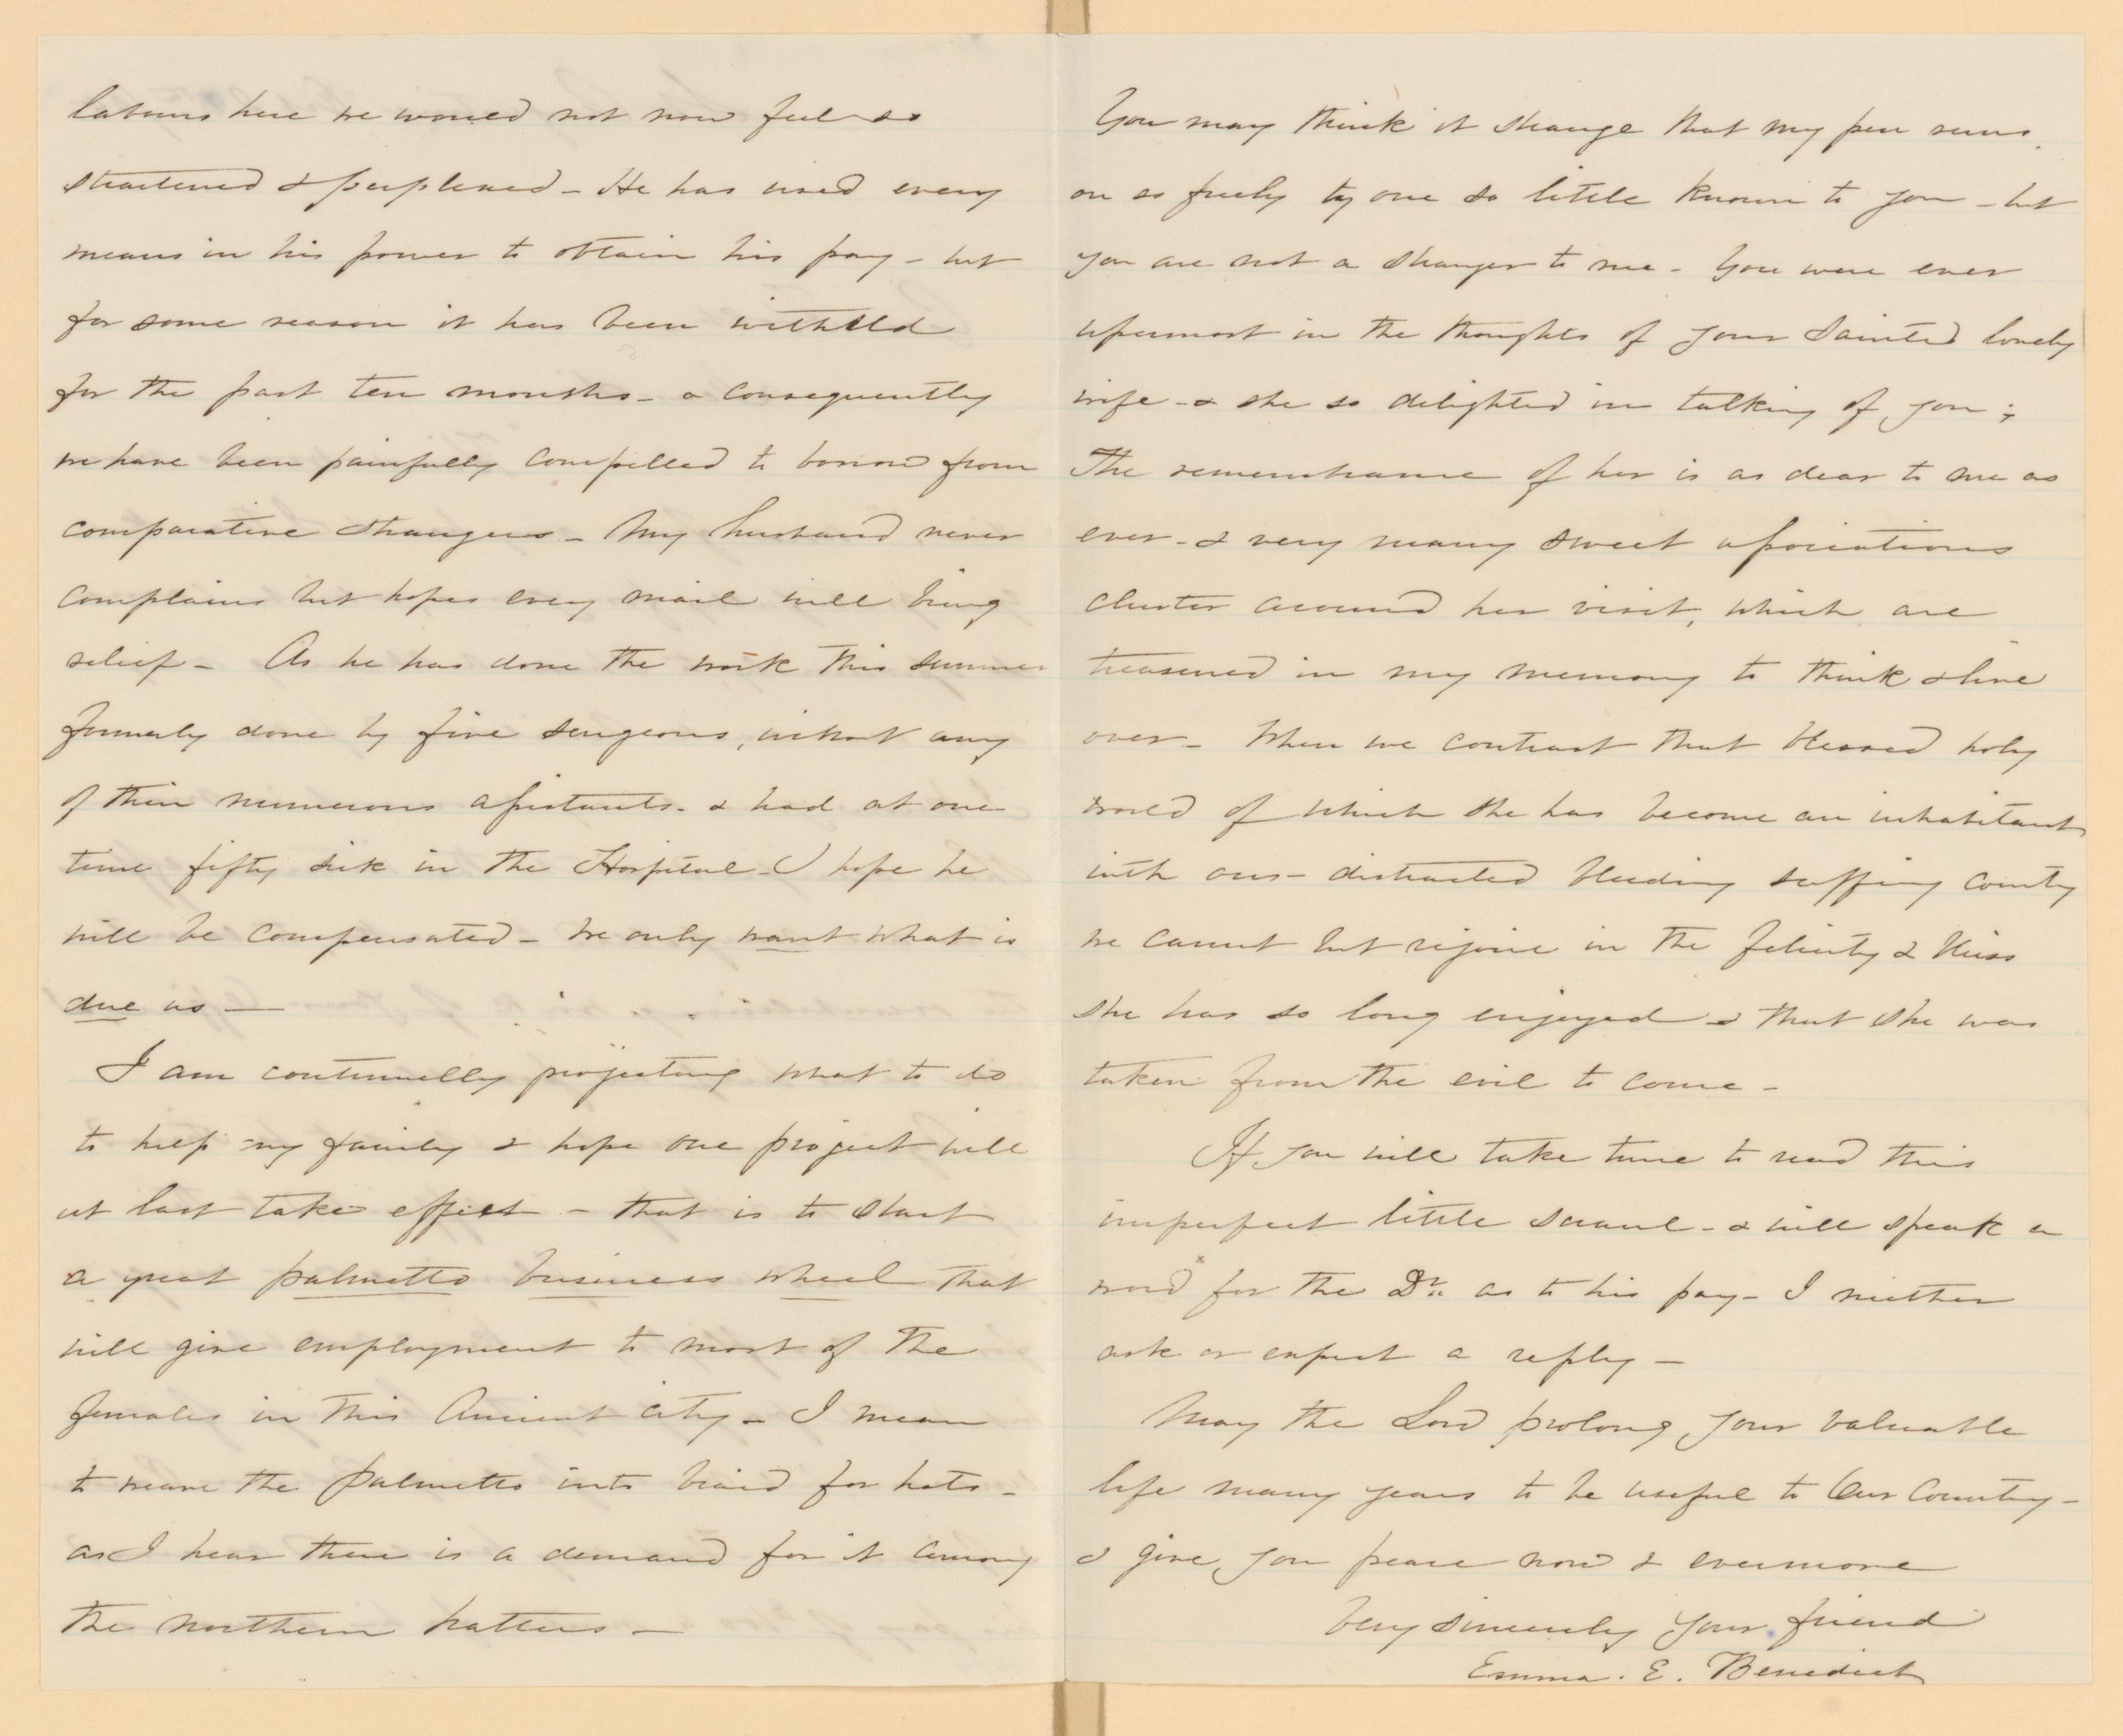 labours here we would not now feel so
straitened & perplexed - He has used every
means in his power to obtain his pay - but
for some reason it has been withheld
for the past ten months - & consequently
we have been painfully compelled to borrow from
comparative strangers - My husband never
complains but hopes every mail will bring
relief - As he has done the work this summer
formerly done by five surgeons, without any
of their numerous assistants - & had at one
time fifty sick in the Hospital - I hope he
will be compensated - We only want what is
due us —
I am continually projecting what to do
to help my family & hope one project will
at last take effect - that is to start
a great palmetto business wheel that
will give employment to most of the
females in this Ancient city - I mean
to weave the palmetto into braid for hats -
as I hear there is a demand for it among
the northern hatters —
You may think it strange that my pen runs
on so freely to one so little known to you - but
you are not a stranger to me - You were ever
upermost in the thoughts of your Sainted lovely
wife - & she so delighted in talking of you;
The remembrance of her is as dear to me as
ever - & very many sweet associations
cluster around her visit, which are
treasured in my memory to think & live
over - When we contrast that blessed holy
world of which she has become an inhabitant
with our distracted bleeding suffing country
we cannot but rejoice in the felicity & bliss
she has so long enjoyed & that she was
taken from the evil to come -
If you will take time to read this
imperfect little scrawl - & will speak a
word for the Dr. as to his pay - I neither
ask or expect a reply —
May the Lord prolong your valuable
life many years to be useful to Our Country -
& give you peace now & evermore
Very sincerely your friend
Emma. E. Benedict